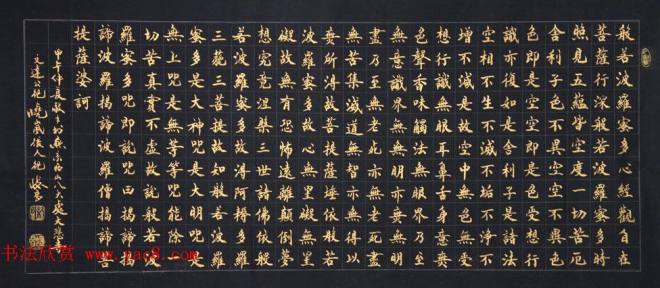 般若波羅蜜多心經觀自在
菩薩行深般若波羅蜜多時
照見五蘊皆空度一切苦厄
舍利子色不異空空不異色
色即是空空即是色受想行
識亦復如是舍利子是諸法
空相不生不滅不垢不淨不
增不減是故空中無色無受
想行識無眼耳鼻舌身意無
色聲香味觸法無眼界乃至
無意識界無無明亦無無明
盡乃至無老死亦無老死盡
無苦集滅道無智亦無得以
無所得故菩提薩埵依般若
波羅蜜多故心無罣礙無罣
礙故無有恐怖遠離顛倒夢
想究竟涅槃三世諸佛依般
若波羅蜜多故得阿耨多羅
三藐三菩提故知般若波羅
蜜多是大神咒是大明咒是
無上咒是無等等咒能除一
切苦真實不虛故說般若波
羅蜜多咒即說咒曰揭諦揭
諦波羅揭諦波羅僧揭諦菩
提薩婆訶
书法欣赏 www.yac8.com